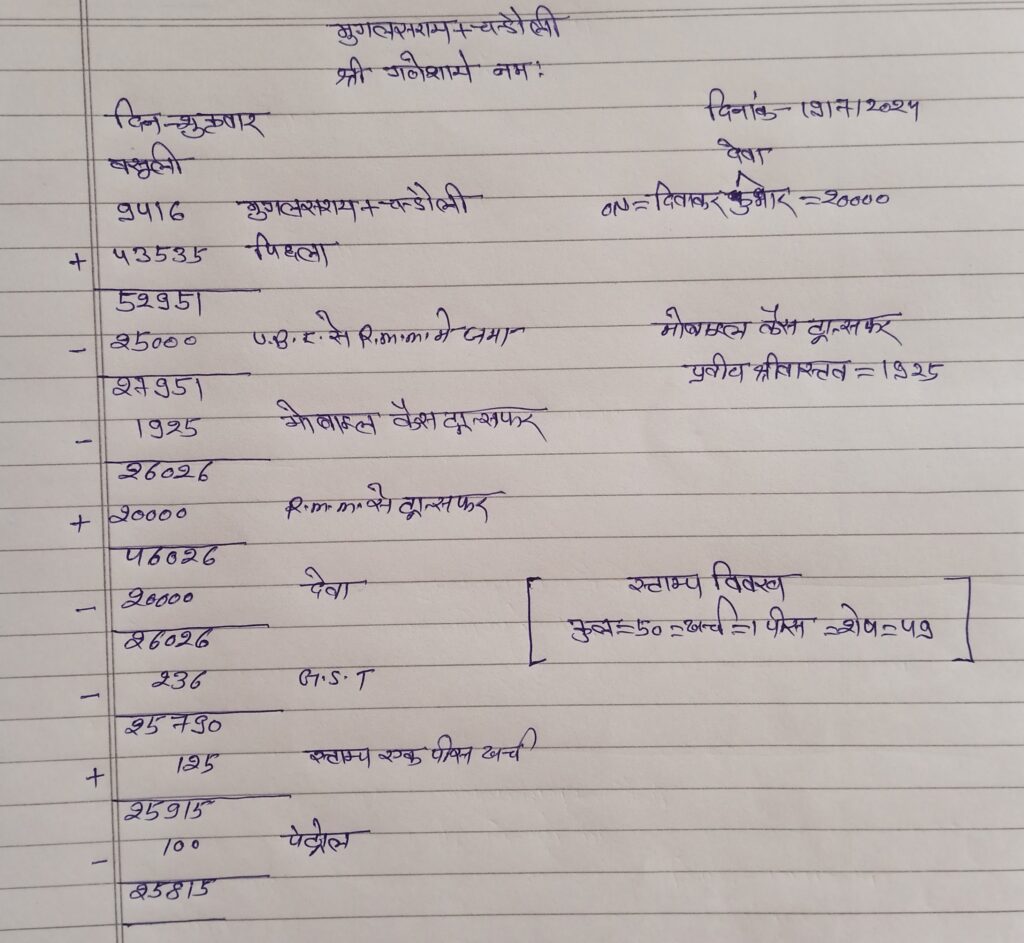 मुगलसराय + चन्दौली
श्री गणेशाये नमः
दिन - शुक्रवार
दिनांक - 19/7/2024
वसूली
देवा
9416 मुगलसराय + चन्दौली
ON = दिवाकर कुमार = 20000
+ 43535 पिछला
52951
- 25000 U.B.I. से R.m.m. मे जमा
मोबाइल कैस ट्रान्सफर
27951
प्रवीय श्रीवास्तव = 1925
- 1925 मोबाइल कैस ट्रान्सफर
26026
+ 20000 R.m.m. से ट्रान्सफर
46026
- 20000 देवा
स्टाम्प विवरण
26026
कुल = 50 = खर्च = 1 पीस = शेष = 49
- 236 G.S.T
25790
+ 125 स्टाम्प एक पीस खर्च
25915
- 100 पेट्रोल
25815